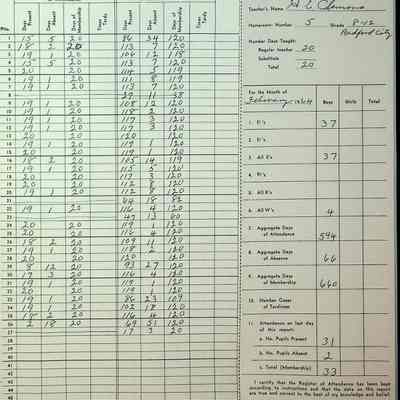 Teacher's Name A C Clemons
Homeroom Number 5 Grade 8-12
Bedford City
Number Days Taught:
Regular Teacher 20
Substitute
Total 20
Pupil No.
Days Present
Days Absent
Days of Membership
Times Tardy
Days Present
Days Absent
Days of Membership
Times Tardy
1 15 5 20 86 34 120
2 18 2 20 113 7 120
3 19 1 20 106 12 118
4 15 5 20 113 7 120
5 20 20
6 19 1 20 111 8 119
7 19 1 20 113 7 120
27 11 38
19 1 20 108 12 120
19 1 20 118 2 120
19 1 20 117 3 120
19 1 20 117 3 120
20 20 120 120
19 1 20 119 1 120
19 1 20 119 1 120
18 2 20 105 14 119
19 1 20 115 5 120
20 20 117 3 120
20 20 112 8 120
19 1 20 112 8 120
64 18 82
19 1 20 116 4 120
47 13 60
20 20 119 1 120
20 20 116 4 120
18 2 20 109 11 120
19 1 20 118 2 120
20 20 120 120
8 12 20 93 27 120
17 3 20 116 4 120
19 1 20 119 1 120
20 20 119 1 120
19 1 20 86 23 109
19 1 20 102 18 120
18 2 20 116 4 120
2 18 20 69 51 120
17 3 20
For the Month of
February, 1964
Boys
Girls
Total
1. E1's 37
2. E2's
3. All E's 37
4. R's
5. All R's
6. All W's 4
7. Aggregate Days of Attendance 594
8. Aggregate Days of Absence 66
9. Aggregate Days of Membership 660
10. Number Cases of Tardiness
11. Attendance on last day of this report:
a. No. Pupils Present 31
b. No. Pupils Absent 2
c. Total (Membership) 33
I certify that the Register of Attendance has been kept
according to instructions and that the data on this report
are true and correct to the best of my knowledge and belief.